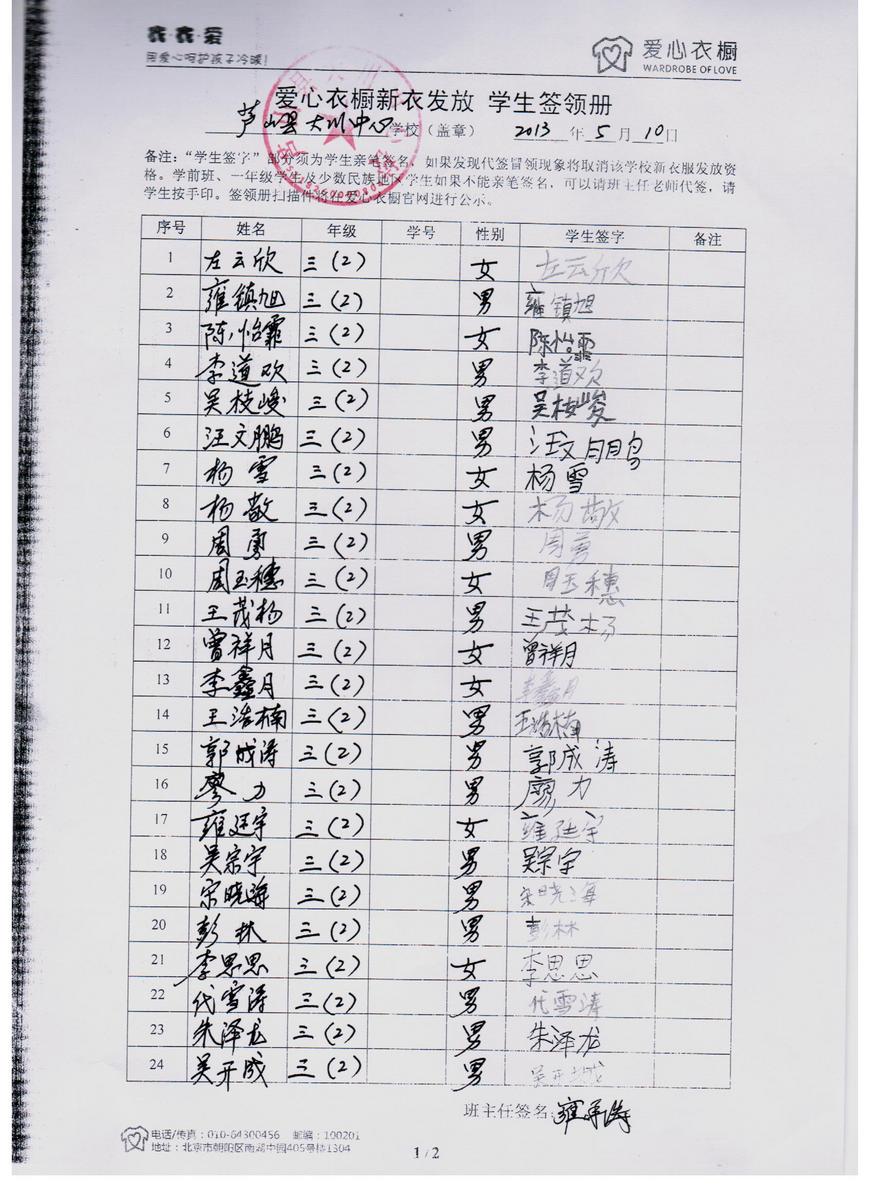 衣·衣·爱
用爱心呵护孩子冷暖!
爱心衣橱
WARDROBE OF LOVE
爱心衣橱新衣发放 学生签领册
芦山县大川中心学校（盖章） 2013 年 5 月 10 日
备注：“学生签字”部分须为学生亲笔签名，如果发现代签冒领现象将取消该学校新衣服发放资
格。学前班、一年级学生及少数民族地区学生如果不能亲笔签名，可以请班主任老师代签，请
学生按手印。签领册扫描件将在爱心衣橱官网进行公示。
序号 姓名 年级 学号 性别 学生签字 备注
1 左云欣 三(2) 女 左云欣
2 雍镇旭 三(2) 男 雍镇旭
3 陈怡霏 三(2) 女 陈怡霏
4 李道欢 三(2) 男 李道欢
5 吴枝峻 三(2) 男 吴枝峻
6 汪文鹏 三(2) 男 汪文鹏
7 杨雪 三(2) 女 杨雪
8 杨敬 三(2) 女 杨敬
9 周勇 三(2) 男 周勇
10 周玉穗 三(2) 女 周玉穗
11 王茂杨 三(2) 男 王茂杨
12 曾祥月 三(2) 女 曾祥月
13 李鑫月 三(2) 女 李鑫月
14 王浩楠 三(2) 男 王浩楠
15 郭成涛 三(2) 男 郭成涛
16 廖力 三(2) 男 廖力
17 雍廷宇 三(2) 女 雍廷宇
18 吴宗宇 三(2) 男 吴宗宇
19 宋晓海 三(2) 男 宋晓海
20 彭林 三(2) 男 彭林
21 李思思 三(2) 女 李思思
22 代雪涛 三(2) 男 代雪涛
23 朱泽龙 三(2) 男 朱泽龙
24 吴开成 三(2) 男 吴开城
班主任签名：
电话/传真：010-64300456 邮编：100201
地址：北京市朝阳区南湖中园405号楼1304
1 / 2